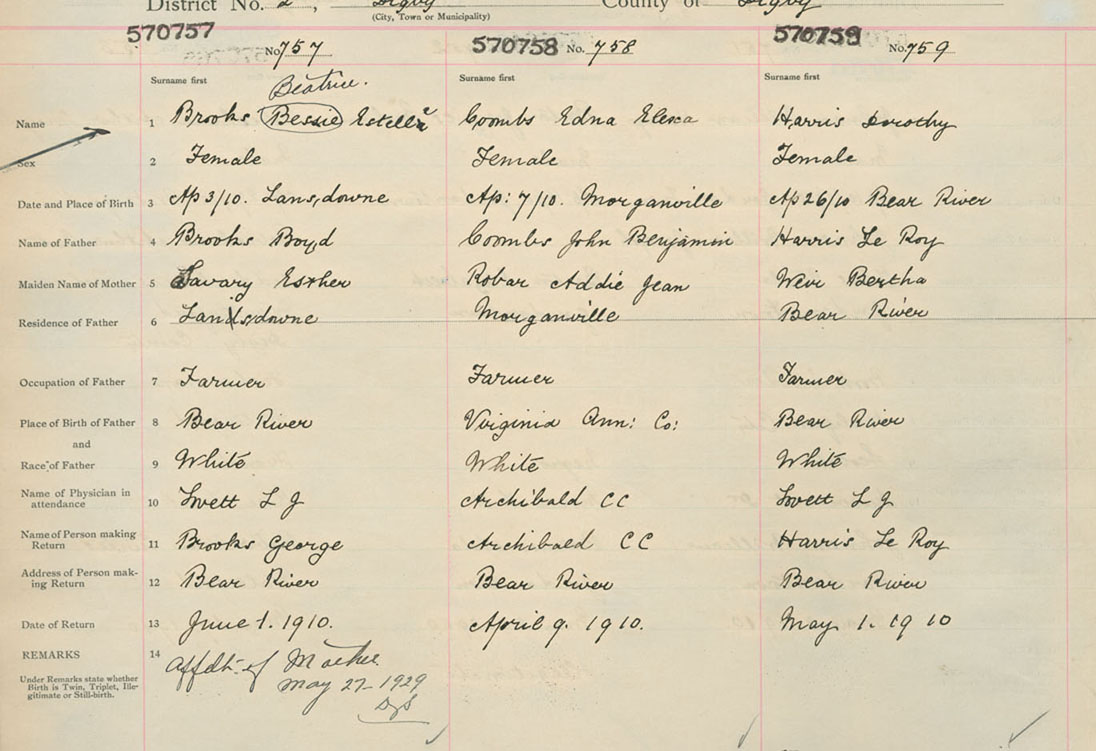 District No. 2, Digby County of Digby
(City, Town or Municipality)
570757 570758 570759
No. 757 No. 758 No. 759
Surname first Surname first Surname first
Beatrice.
Name 1 Brooks Bessie Estella Coombs Edna Elena Harris Dorothy
Sex 2 Female Female Female
Date and Place of Birth 3 Ap 3/10. Lansdowne Ap: 7/10. Morganville Ap 26/10 Bear River
Name of Father 4 Brooks Boyd Coombs John Benjamin Harris Le Roy
Maiden Name of Mother 5 Savary Esther Robar Addie Jean Weir Bertha
Residence of Father 6 Lansdowne Morganville Bear River
Occupation of Father 7 Farmer Farmer Farmer
Place of Birth of Father 8 Bear River Virginia Ann: Co: Bear River
and
Race of Father 9 White White White
Name of Physician in
attendance 10 Lovett L J Archibald CC Lovett L J
Name of Person making
Return 11 Brooks George Archibald CC Harris Le Roy
Address of Person mak-
ing Return 12 Bear River Bear River Bear River
Date of Return 13 June 1. 1910. April 9. 1910. May 1. 1910
REMARKS 14 Affdt. of Mother
Under Remarks state whether
Birth is Twin, Triplet, Ille-
gitimate or Still-birth.
May 27-1929